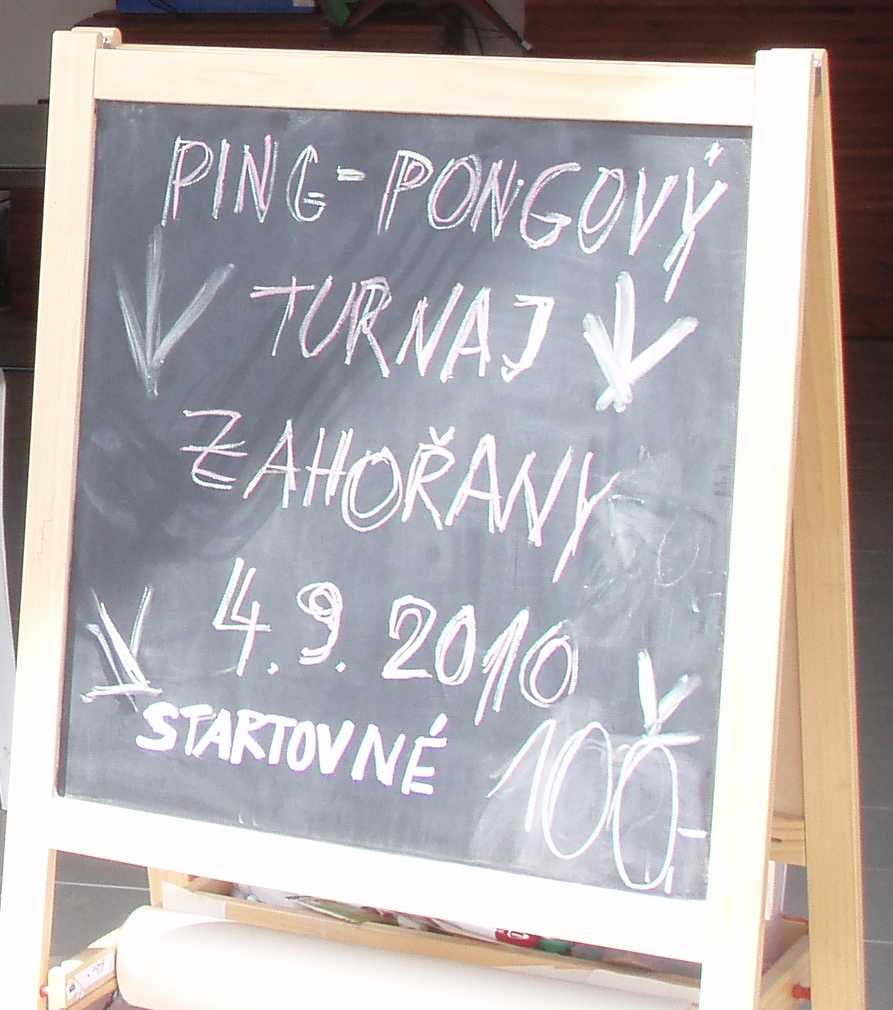 PING-PONGOVÝ
TURNAJ
ZAHOŘANY
4.9.2010
STARTOVNÉ 100,-